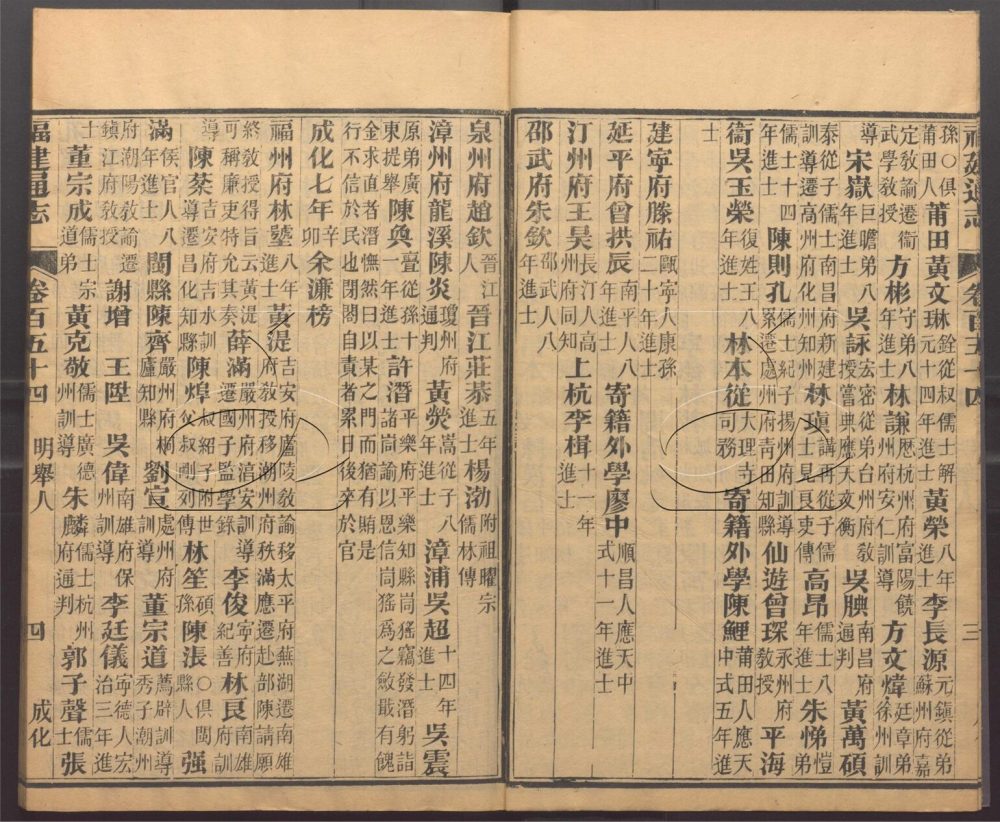 福建通志 卷百五十四 三
孫○俱莆田人莆田黃文琳銓從叔儒士解元十四年進士黃榮八年進士李長源元鎮從弟蘇州府嘉
定教諭遷衛武學教授方彬守弟八年進士林謙歷杭州府富陽饒州府安仁訓導方文煒廷章弟徐州訓
導宋嶽巨瞻弟八年進士吳詠宏密從弟台州府教授嘗典應天文衡吳腆南昌府通判黃萬碩
泰從子儒士南昌府新建訓導遷高州府化州知州林瑱講再從子儒士見良吏傳高昂儒士八年進士朱悌愷弟
儒士十四年進士陳則孔儒士紀子揚州府訓導累遷處州府青田知縣仙遊曾琛永州府教授平海
衞吳玉榮復姓王八年進士林本從大理寺司務寄籍外學陳鯉莆田人應天中式五年進
士
建寧府滕祐甌寧人康孫二十年進士
延平府曾拱辰南平人八年進士寄籍外學廖中順昌人應天中式十一年進士
汀州府王昊長汀人高州府同知上杭李楫十一年進士
邵武府朱欽邵武人八年進士
泉州府趙欽晉江人晉江莊恭五年進士楊渤附祖曜宗儒林傳
漳州府龍溪陳炎瓊州府通判黃熒嵩從子八年進士漳浦吳超十四年進士吳震
原弟廣東提舉陳奐亹從孫十一年進士許潛平樂府平樂知縣峝猺竊發潛躬詣諸峝諭以恩信峝猺爲之斂戢有餽
金求直者潛憮然曰以某之門而猶有賄是行不信於民也閉閤自責者累日後卒於官
成化七年辛卯余濂榜
福州府林壂八年進士黃湜吉安府廬陵敎諭移太平府蕪湖遷南雄府敎授移潮州府秩滿應遷赴部陳請願
終敎授得旨云黃湜可稱廉吏特允其奏薛滿嚴州府淯安訓導遷國子監學錄李俊寧府紀善林良南雄府訓
導陳棻吉安府吉水訓導遷昌化知縣陳焯叔紹子附世父叔剛列傳林笙碩孫陳張○俱閩縣人强
滿侯官人八年進士閩縣陳齊嚴州府桐廬知縣劉宣處州府訓導董宗道薦辟訓導秀子潮州
府潮陽敎諭遷鎮江府敎授謝增 王陞 吳偉南雄府保昌訓導李廷儀寧德人宏治三年進
士董宗成儒士宗道弟黃克敬儒士廣德州訓導朱麟儒士杭州府通判郭子聲儒士張
福建通志 卷百五十四 明舉人 四 成化